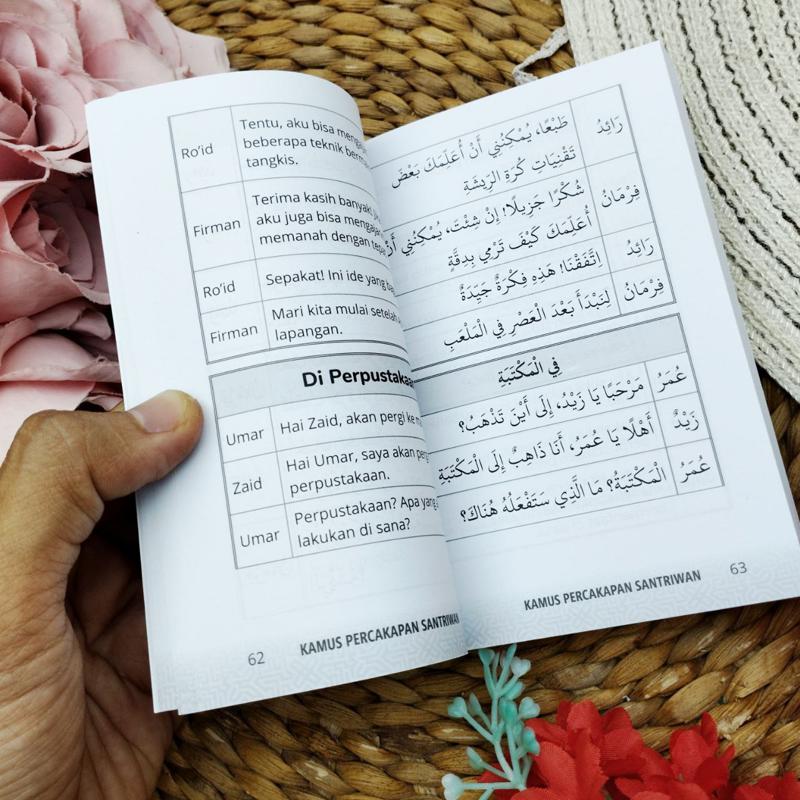 Ro'id
Tentu, aku bisa
beberapa teknik
tangkis.
Firman
Terima kasih banyak!
aku juga bisa
memanah dengan
Ro'id
Sepakat! Ini ide yang
Firman
Mari kita mulai setelah
lapangan.
Di Perpustakaan
Umar
Hai Zaid, akan pergi ke
Zaid
Hai Umar, saya akan
perpustakaan.
Umar
Perpustakaan? Apa yang
lakukan di sana?
62
KAMUS PERCAKAPAN SANTRIWAN
رَائِدُ
طَبْعًا، يُمْكِنُنِي أَنْ أُعَلِّمَكَ بَعْضَ
تَقْنِيَاتِ كُرَةِ الرِّيْشَةِ
فِرْمَانُ
شُكْرًا جَزِيلًا! إِنْ شِئْتَ، يُمْكِنُنِي أَنْ
أُعَلِّمَكَ كَيْفَ تَرْمِي بِدِقَّةٍ
رَائِدُ
اِتَّفَقْنَا! هَذِهِ فِكْرَةٌ جَيِّدَةٌ
فِرْمَانُ
لِنَبْدَأْ بَعْدَ الْعَصْرِ فِي الْمَلْعَبِ
فِي الْمَكْتَبَةِ
عُمَرُ
مَرْحَبًا يَا زَيْدُ، إِلَى أَيْنَ تَذْهَبُ؟
زَيْدٌ
أَهْلًا يَا عُمَرُ، أَنَا ذَاهِبٌ إِلَى الْمَكْتَبَةِ
عُمَرُ
الْمَكْتَبَةُ؟ مَا الَّذِي سَتَفْعَلُهُ هُنَاكَ؟
KAMUS PERCAKAPAN SANTRIWAN
63